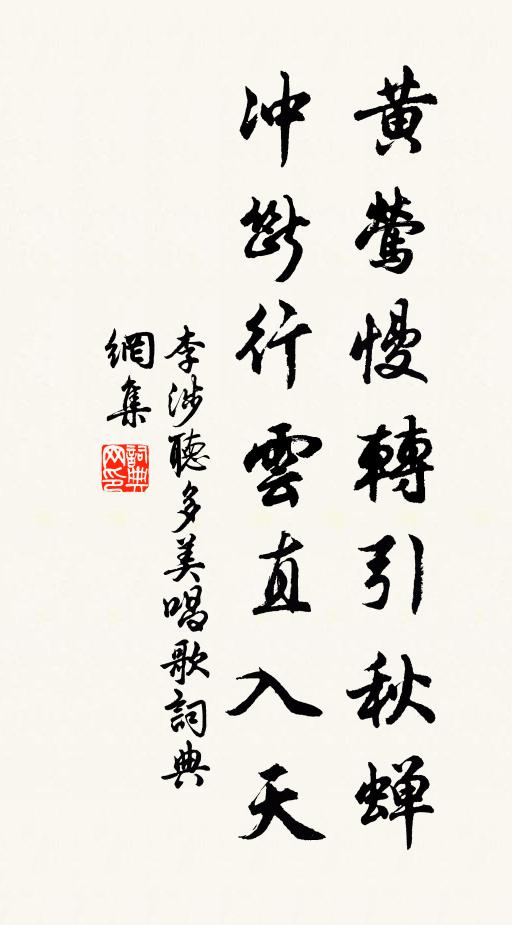 黄鶯慢轉引秋蝉
冲斷行雲直入天
李涉聽多美唱歌詞典
網集
詞典
网印